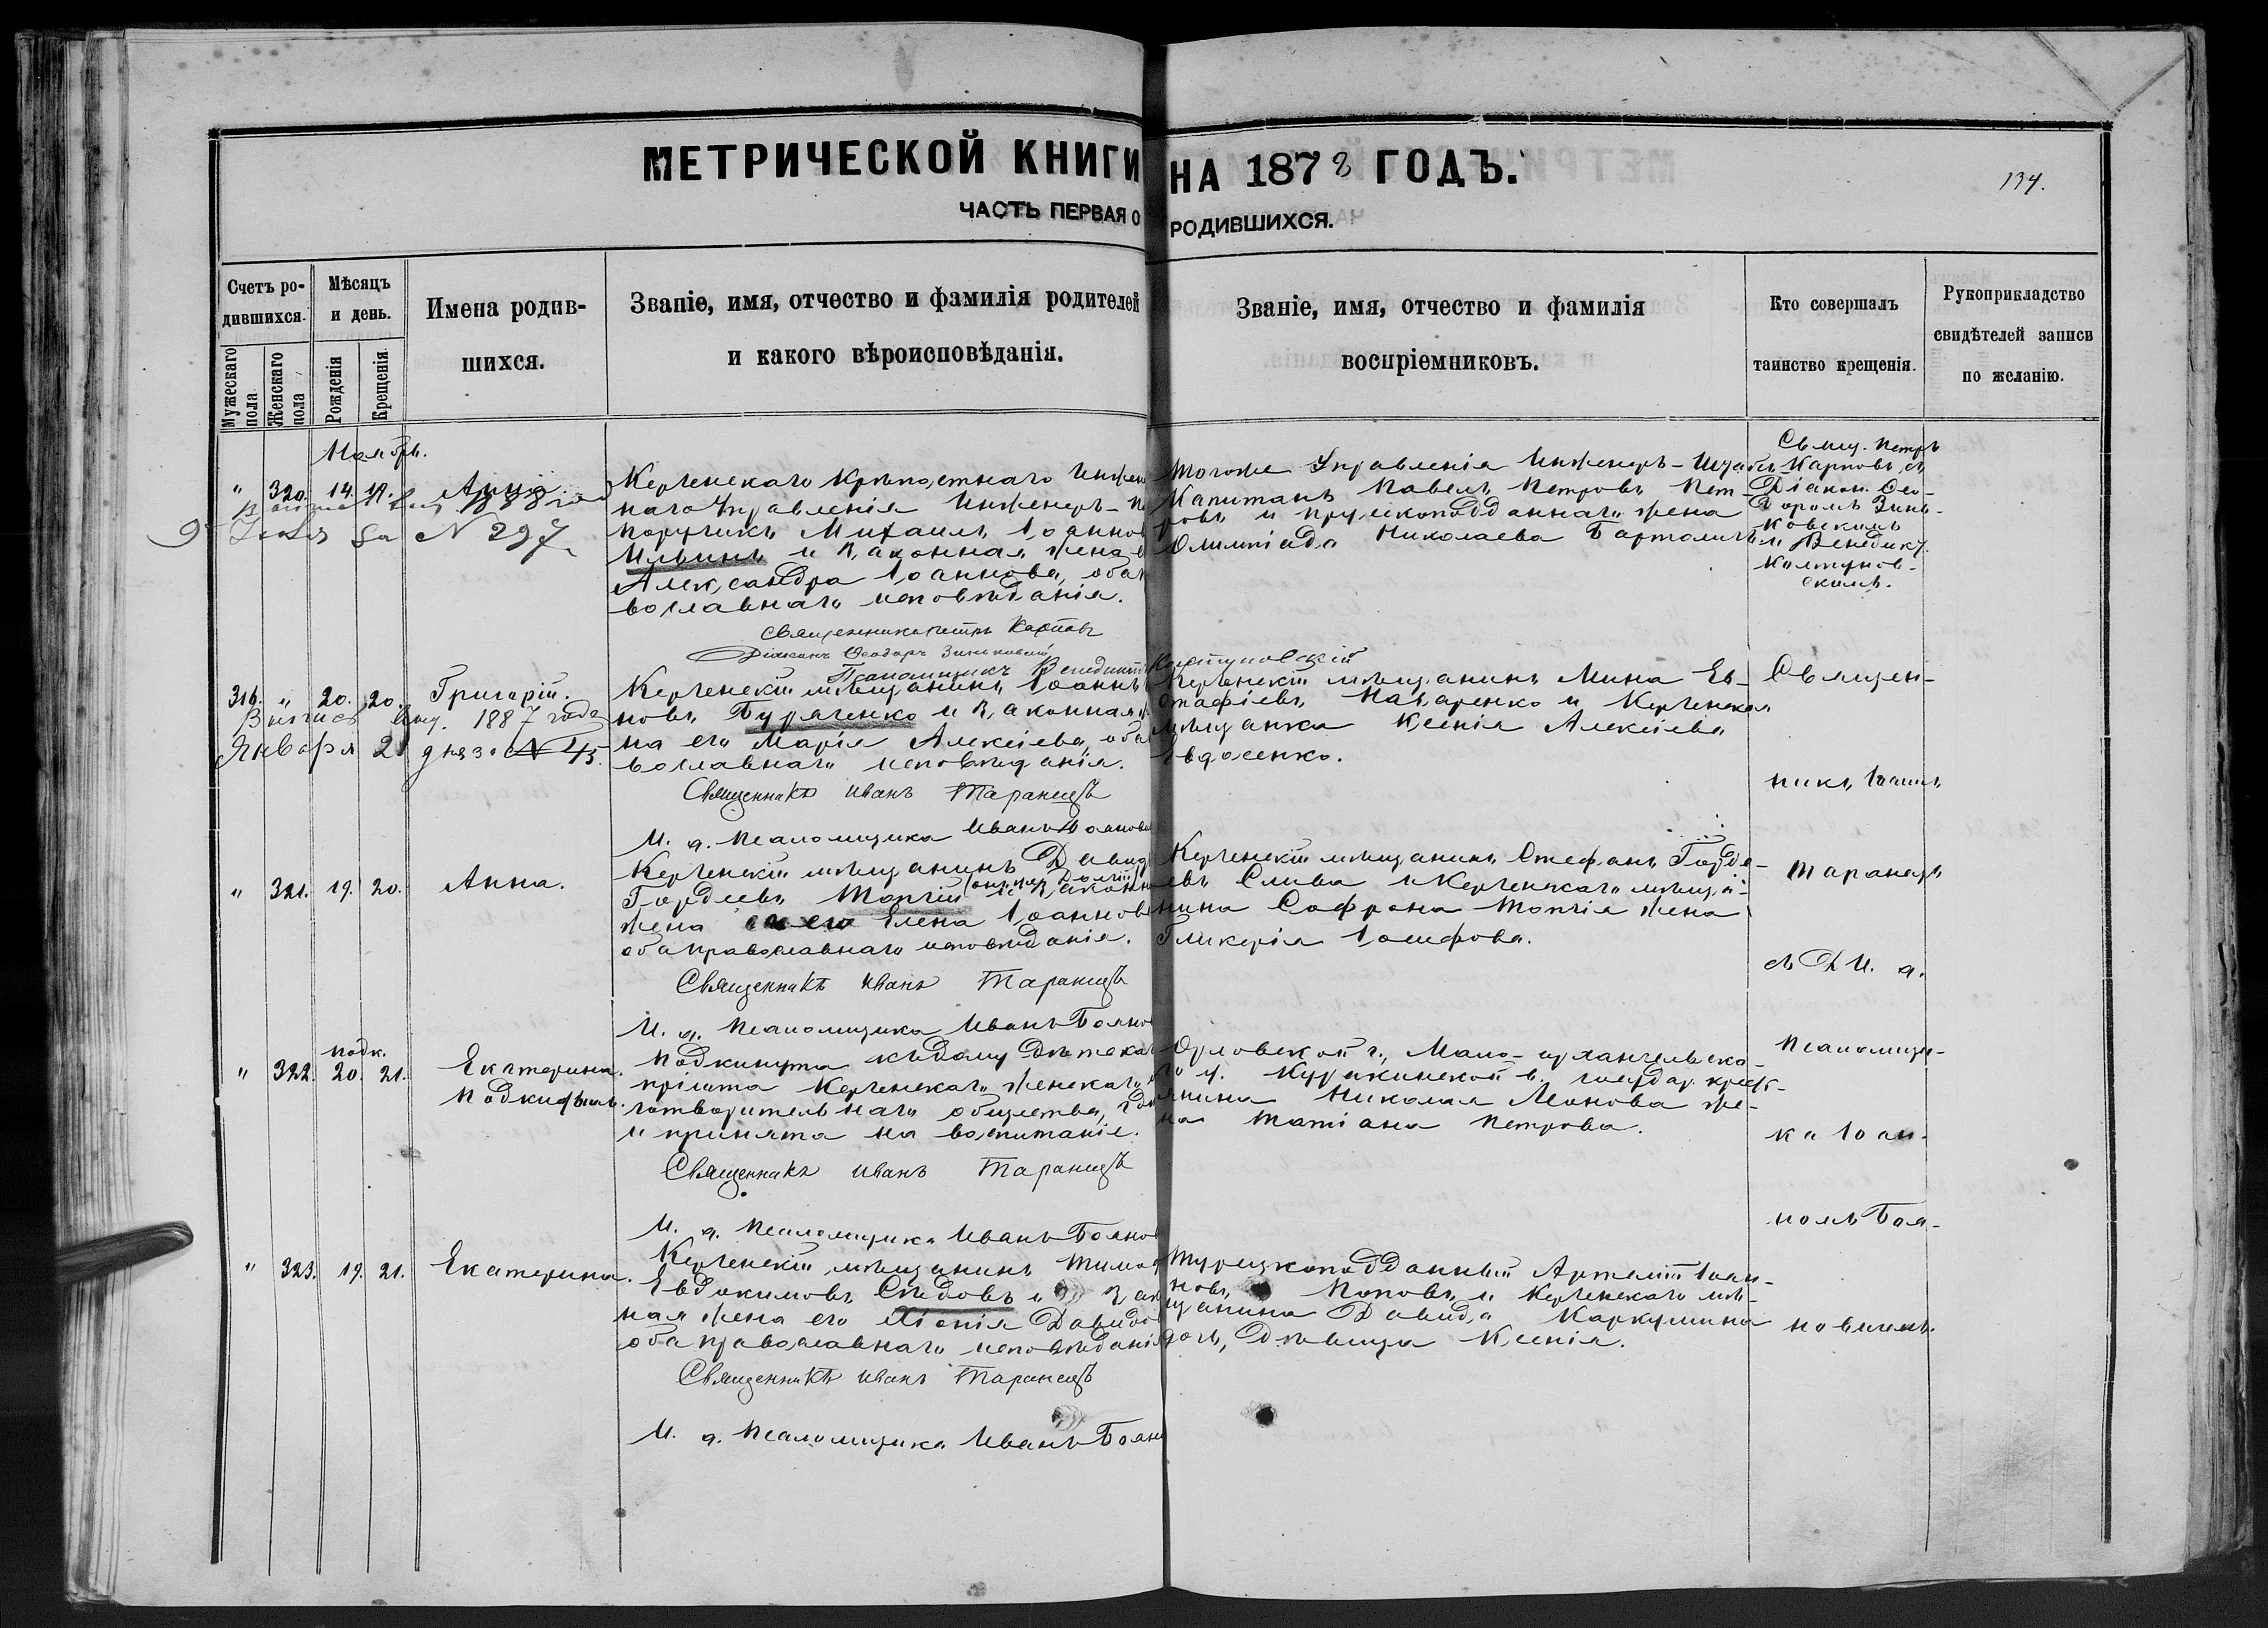 МЕТРИЧЕСКОЙ КНИГИ НА 1878 ГОДЪ.
134.
ЧАСТЬ ПЕРВАЯ О РОДИВШИХСЯ.
Счетъ ро-
дившихся.
Мужескаго пола
Женскаго пола
Мѣсяцъ
и день.
Рожденія
Крещенія.
Имена родив-
шихся.
Званіе, имя, отчество и фамилія родителей
и какого вѣроисповѣданія.
Званіе, имя, отчество и фамилія
воспріемниковъ.
Кто совершалъ
таинство крещенія.
Рукоприкладство
свидѣтелей записи
по желанію.
Ноябрь.
" 320. 14. 19.
за N 297
Керченскаго крѣпостнаго Инжен
наго Управленія Инженеръ-По
поручикъ Михаилъ Іоаннов
Ильинъ и законная жена е
Александра Іоаннова, оба
вославнаго исповѣданія.
Священникъ Петръ Карповъ
Діаконъ Ѳеодоръ Зиньковскій
Псаломщикъ Венедиктъ Колтуновскій
Тогоже Управленія Инженеръ-Шта
Капитанъ Павелъ Петровъ Пет-
ровъ и прусскоподданнаго жена
Олимпіада Николаева
Свящ. Петръ
Карповъ съ
Діакон. Ѳео-
доромъ Зинь-
ковскимъ
и Венедикт.
Колтунов-
скимъ.
316. " 20. 20. Григорій.
Выпись выд. 1887 года
Января 21 дня за N 45.
Керченскій мѣщанинъ Іоаннъ
новъ Буряченко и законная ж
на его Марія Алексіева, оба
вославнаго исповѣданія.
Священникъ Иванъ Таранецъ
И. д. псаломщика Иванъ Боянов
Керченскій мѣщанинъ Мина Ев-
стафіевъ Назаренко и Керченская
мѣщанка Ксенія Алексіева
Евдосенко.
" 321. 19. 20. Анна.
Керченскій мѣщанинъ Давид
Гордѣевъ Топчій и законн
жена его Елена Іоаннов
оба православнаго исповѣданія.
Священникъ Иванъ Таранецъ
И. д. псаломщика Иванъ Боянов
Керченскій мѣщанинъ Стефанъ Горде-
евъ Слива и Керченскаго мѣща-
нина Софрона Топчія жена
Гликерія Іосифова.
подк.
" 322. 20. 21. Екатерина.
Подкидышъ.
Подкинута къ дому Дѣтскаг
пріюта Керченскаго женскаго
готворительнаго общества, гдѣ
и принята на воспитаніе.
Священникъ Иванъ Таранецъ
И. д. псаломщика Иванъ Боянов
Орловской г., Мало-архангельска-
го у. Куракинской в. государ. крест-
янина Николая Монова же-
на Татіана Петрова.
" 323. 19. 21. Екатерина.
Керченскій мѣщанинъ Тимоѳ
Евдокимовъ Сѣдовъ и зак
ная жена его Хіонія Давидов
оба православнаго исповѣданія
Священникъ Иванъ Таранецъ
И. д. псаломщика Иванъ Боян
Турецкоподданный Артемій Іоан-
новъ Поповъ и Керченскаго мѣ-
щанина Давида Каркушина
дочь, дѣвица Ксенія.
Священ-
никъ Іоаннъ
Таранецъ
съ И. д.
псаломщи-
ка Іоан-
номъ Боя-
новичемъ.